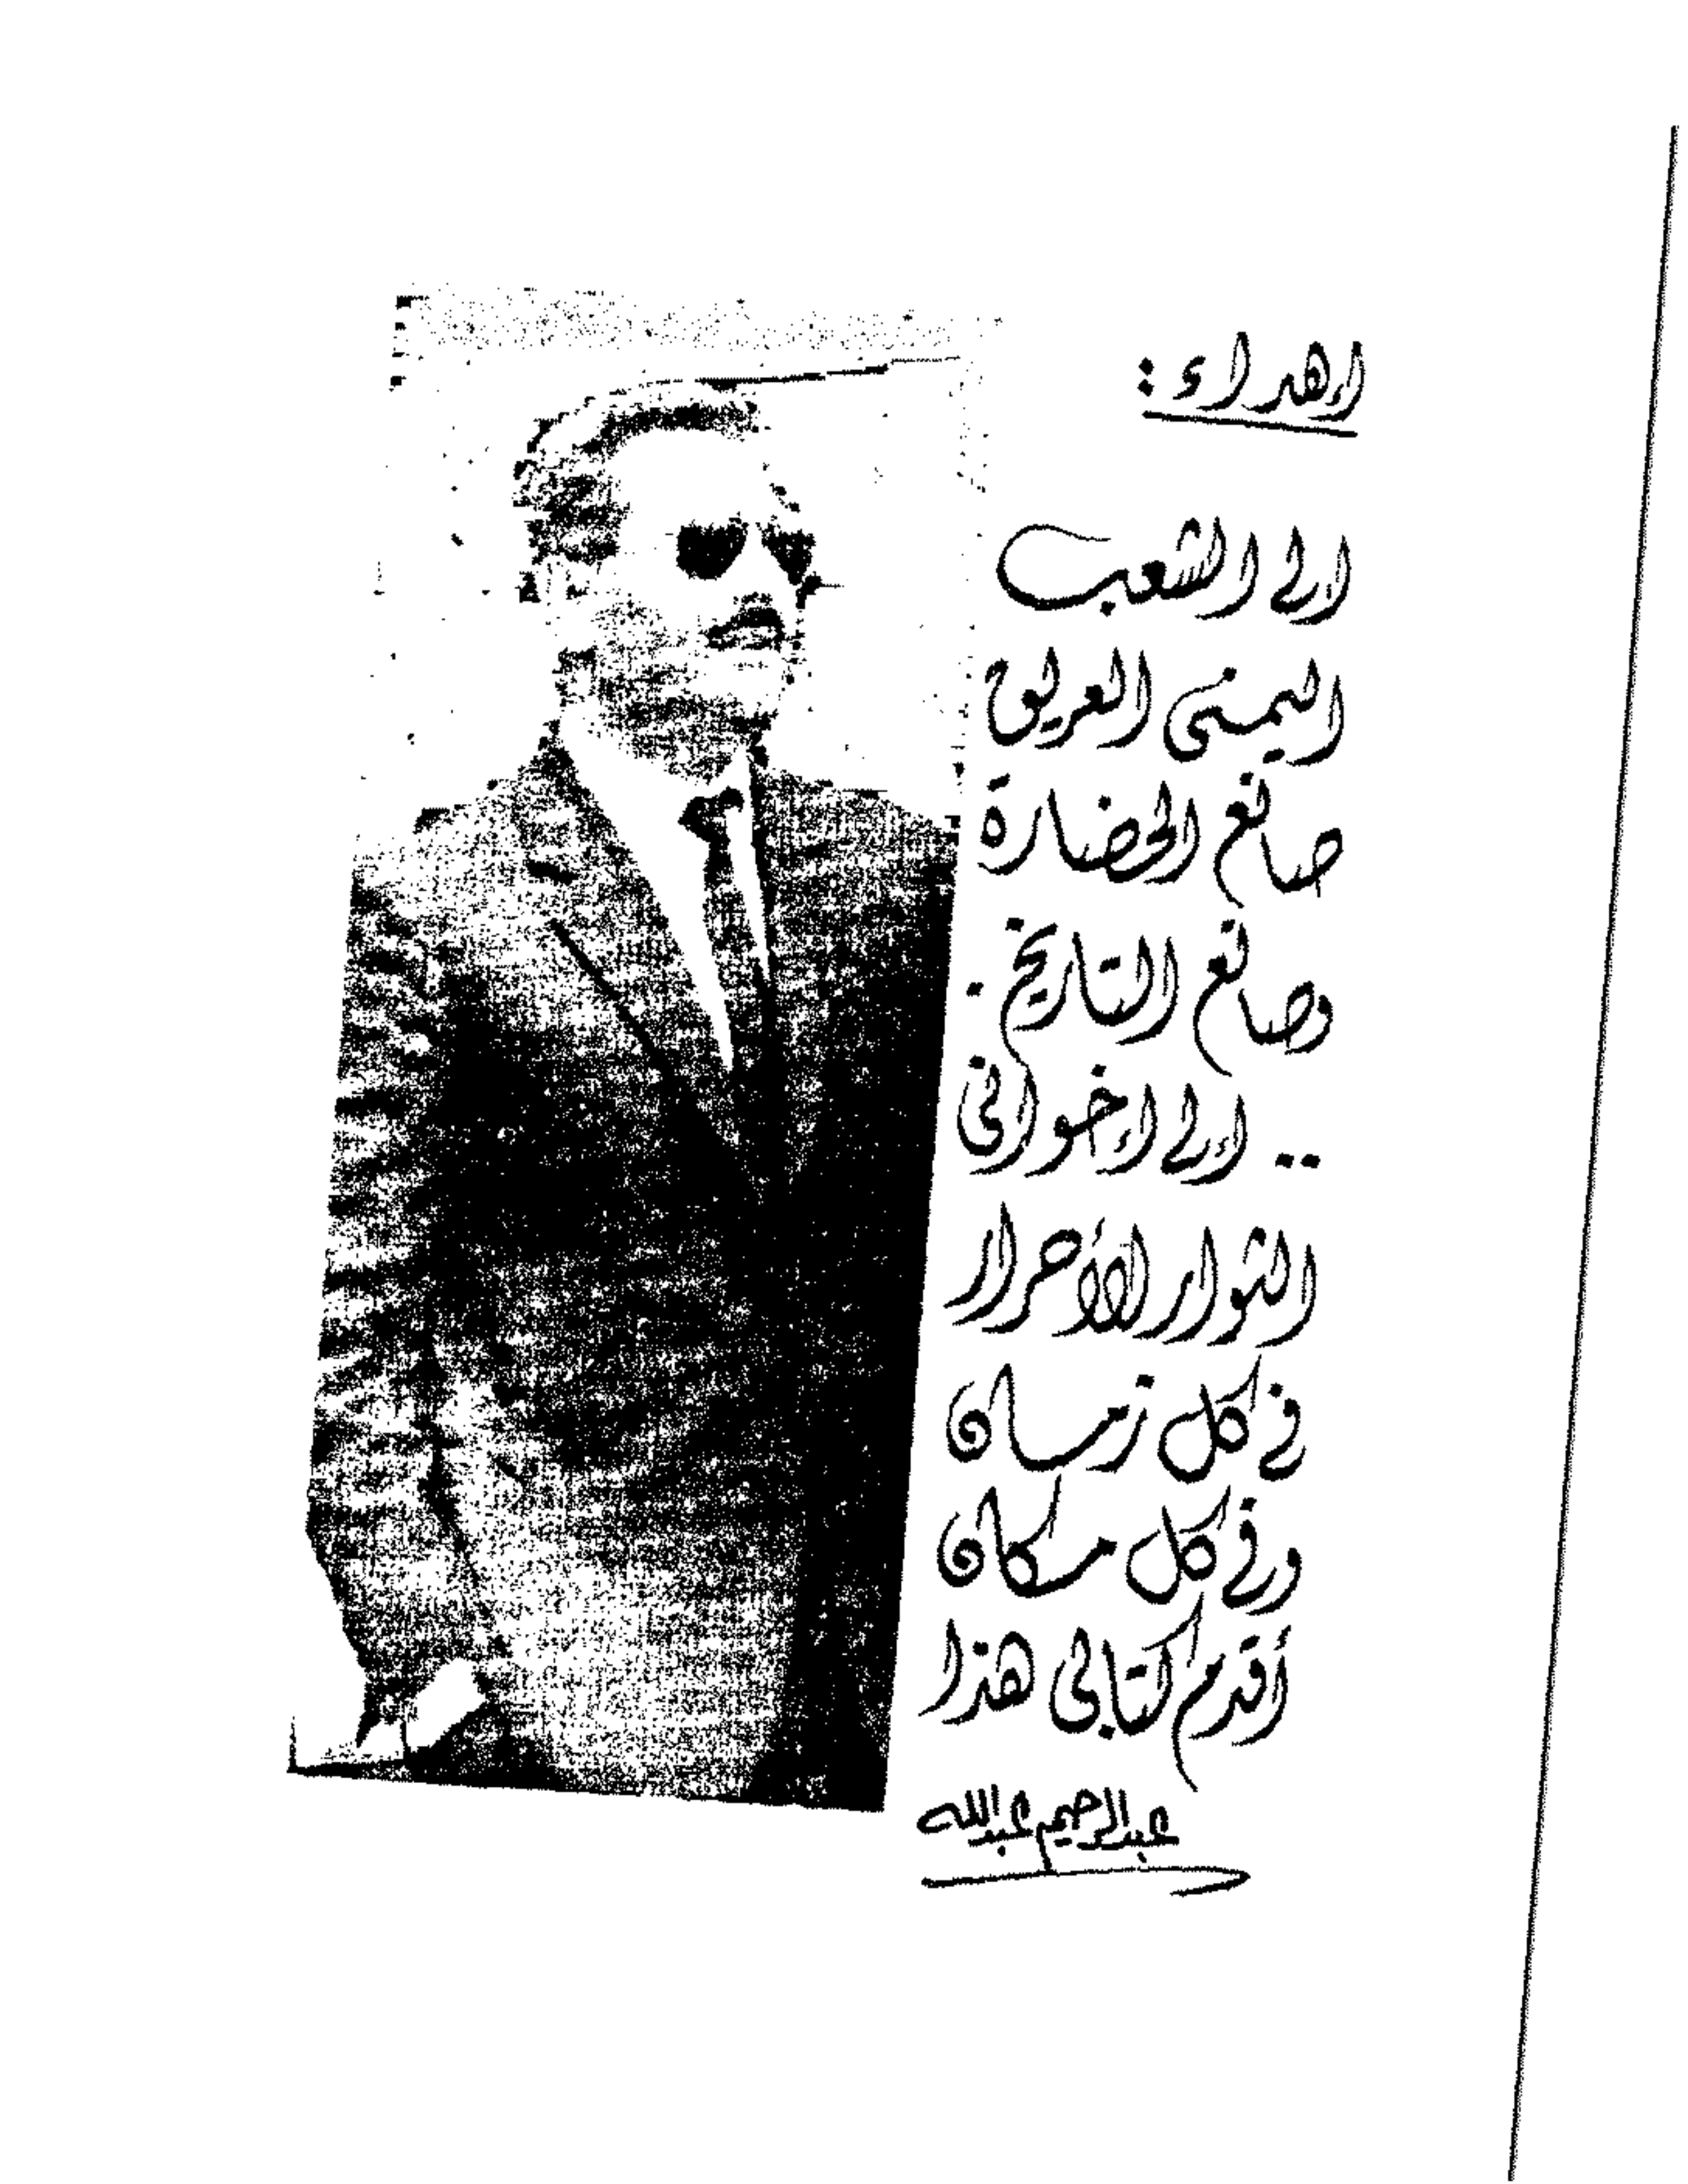 إهداء :
الى الشعب
اليمنى العريق
صانع الحضارة
وصانع التاريخ .
.. إلى إخوانى
الثوار الأحرار
فى كل زمان
وفى كل مكان
أقدم كتابى هذا
عبدالرحيم عبدالله